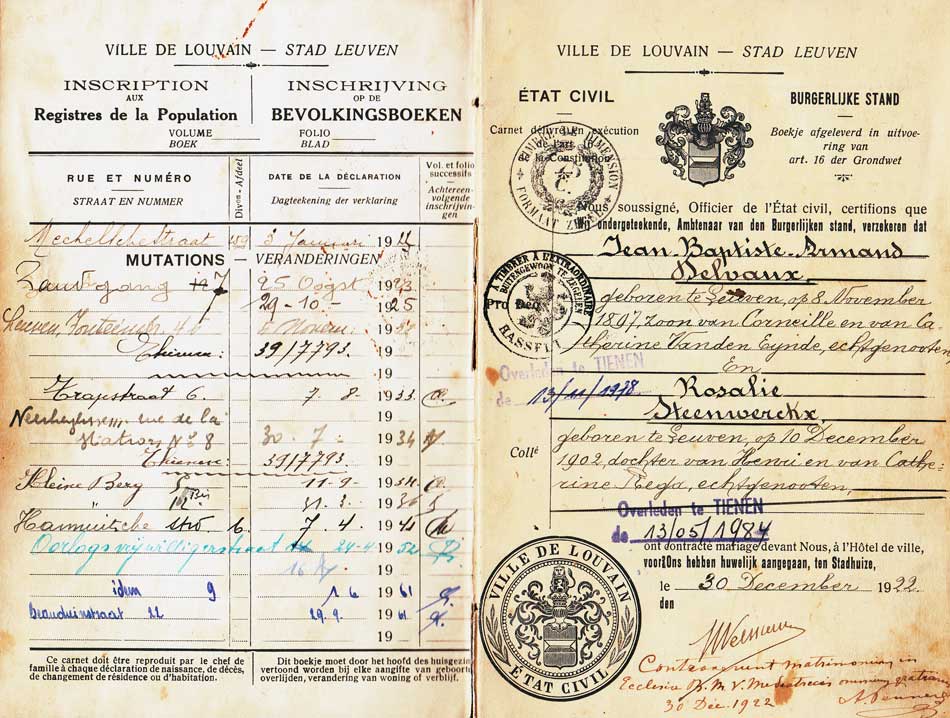 VILLE DE LOUVAIN — STAD LEUVEN
INSCRIPTION
AUX
Registres de la Population
VOLUME
BOEK
INSCHRIJVING
OP DE
BEVOLKINGSBOEKEN
FOLIO
BLAD
RUE ET NUMÉRO
STRAAT EN NUMMER
Divon-Afdeel
DATE DE LA DÉCLARATION
Dagteekening der verklaring
Vol. et folio
successifs
Achtereen-
volgende
inschrijvin-
gen
Mechelschestraat 3 Januari 19
MUTATIONS — VERANDERINGEN
7 25 Oogst 1923
29-10- 1925
Leuven, 19
Thienen: 39/7793. 19
19
Trapstraat 6. 7-8- 1933
rue de la 19
No 8 30.7 1934
Thienen: 39/7793. 19
Kleine Berg 5 11-9- 19
12 Bis 31.3. 19
6. 7.4. 19
Oorlogsvrijwilligerstraat 24-4 1952
19
idem 9 1 6 1961
Beauduinstraat 22 29.9. 1961
19
Ce carnet doit être reproduit par le chef de
famille à chaque déclaration de naissance, de décès,
de changement de résidence ou d'habitation.
Dit boekje moet door het hoofd des huisgezins
vertoond worden bij elke aangifte van geboorte
overlijden, verandering van woning of verblijf.
VILLE DE LOUVAIN — STAD LEUVEN
ÉTAT CIVIL
Carnet délivré en exécution
de l'art. 16
de la Constitution
BURGERLIJKE STAND
Boekje afgeleverd in uitvoe-
ring van
art. 16 der Grondwet
TIMBRE DE DIMENSION
FORMAAT ZEGEL
Nous soussigné, Officier de l'État civil, certifions que
ondergeteekende, Ambtenaar van den Burgerlijken stand, verzekeren dat
Jean Baptiste Armand
Delvaux
A TIMBRER A L'EXTRAORDINAIRE
BUITENGEWOON TE ZEGELEN
Pro Deo
HASSELT
geboren te Leuven, op 8 November
1897, zoon van Corneille en van Ca-
therine Vanden Eynde, echtgenooten
Overleden te TIENEN
de 13/11/1978
En
Rosalie
Steenwerckx
geboren te Leuven, op 10 December
Collé
1902, dochter van Henri en van Cathe-
rine Rega, echtgenooten,
Overleden te TIENEN
de 13/05/1984
ont contracté mariage devant Nous, à l'Hôtel de ville,
voor Ons hebben huwelijk aangegaan, ten Stadhuize,
le 30 December 1922.
den
VILLE DE LOUVAIN
ÉTAT CIVIL
Contraxerunt matrimonium in
Ecclesia B. M. V. Mediatricis omnium gratiarum
30 Dec. 1922